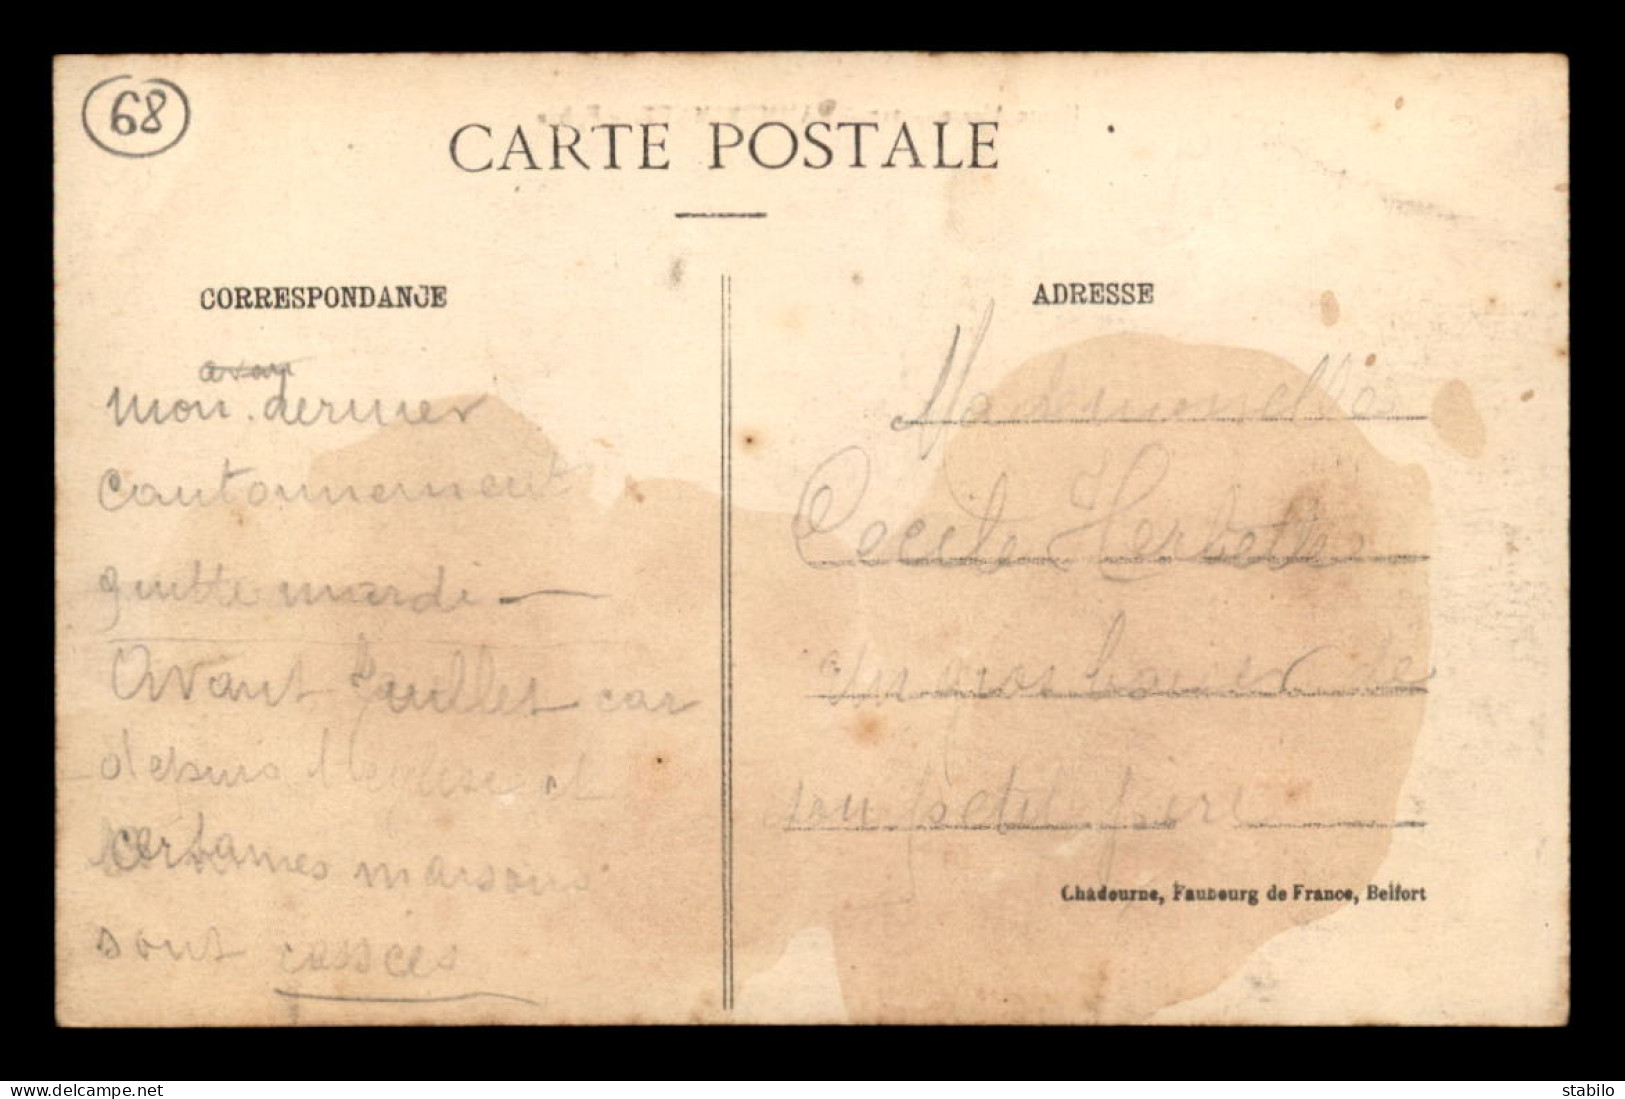 68
CARTE POSTALE
CORRESPONDANCE
ADRESSE
avan
mon dernier
cantonnement
quitté mardi —
Avant Juillet car
depuis l'église et
certaines maisons
sont cassées
Mademoiselle
Cecile Herbette
un gros baiser de
son petit frere
Chadourne, Faubourg de France, Belfort
Website: www.delcampe.net
stabilo